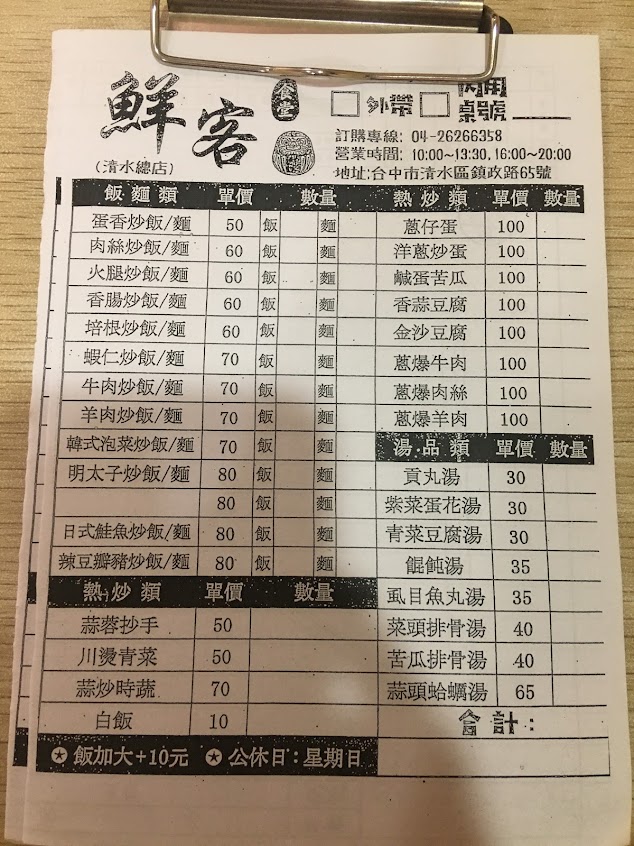 鮮客
食堂
(清水總店)
外帶 內用
桌號
訂購專線: 04-26266358
營業時間: 10:00~13:30, 16:00~20:00
地址:台中市清水區鎮政路65號
飯麵類 單價 數量
蛋香炒飯/麵 50 飯 麵
肉絲炒飯/麵 60 飯 麵
火腿炒飯/麵 60 飯 麵
香腸炒飯/麵 60 飯 麵
培根炒飯/麵 60 飯 麵
蝦仁炒飯/麵 70 飯 麵
牛肉炒飯/麵 70 飯 麵
羊肉炒飯/麵 70 飯 麵
韓式泡菜炒飯/麵 70 飯 麵
明太子炒飯/麵 80 飯 麵
80 飯 麵
日式鮭魚炒飯/麵 80 飯 麵
辣豆瓣豬炒飯/麵 80 飯 麵
熱炒類 單價 數量
蒜蓉抄手 50
川燙青菜 50
蒜炒時蔬 70
白飯 10
✪ 飯加大+10元 ✪ 公休日:星期日
熱炒類 單價 數量
蔥仔蛋 100
洋蔥炒蛋 100
鹹蛋苦瓜 100
香蒜豆腐 100
金沙豆腐 100
蔥爆牛肉 100
蔥爆肉絲 100
蔥爆羊肉 100
湯品類 單價 數量
貢丸湯 30
紫菜蛋花湯 30
青菜豆腐湯 30
餛飩湯 35
虱目魚丸湯 35
菜頭排骨湯 40
苦瓜排骨湯 40
蒜頭蛤蠣湯 65
合計: